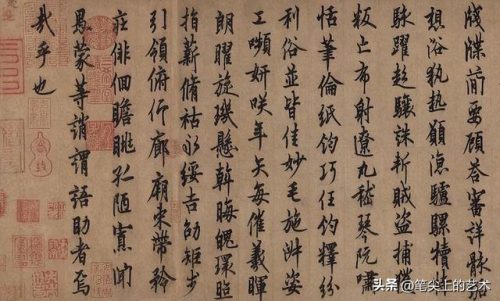 牋牒簡要顧答審詳骸垢
想浴執熱願涼驢騾犢特
駭躍超驤誅斬賊盜捕獲
叛亡布射遼丸嵇琴阮嘯
恬筆倫紙鈞巧任釣釋紛
利俗並皆佳妙毛施淑姿
工嚬妍咲年矢每催羲暉
朗曜旋璣懸斡晦魄環照
指薪脩祜永綏吉劭矩步
引領俯仰廊廟束帶矜
莊俳佪瞻眺孤陋寡聞
愚蒙等誚謂語助者焉
哉乎也
头条 @笔尖上的艺术